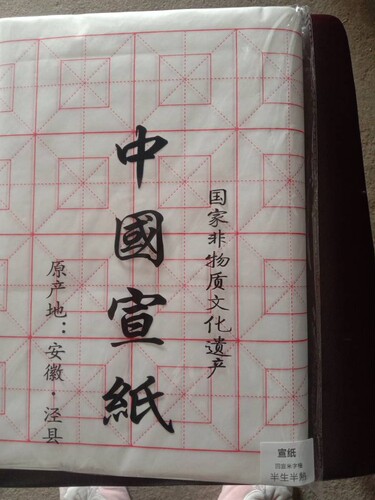 国家非物质文化遗产
中國宣紙
原产地：安徽·泾县
宣纸
回宫米字格
半生半熟